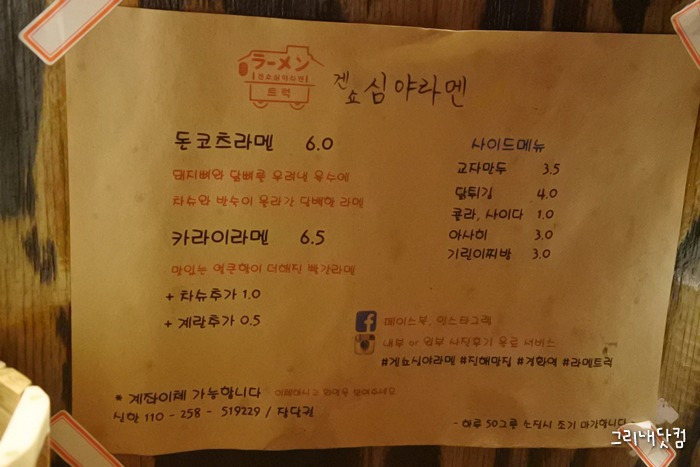 ラーメン
트럭
겐쇼심야라멘
돈코츠라멘 6.0
돼지뼈와 닭뼈를 우려낸 육수에
차슈와 반숙이 올라가 담백한 라멘
카라이라멘 6.5
맛있는 얼큰함이 더해진 빨간라멘
+ 차슈추가 1.0
+ 계란추가 0.5
사이드메뉴
교자만두 3.5
닭튀김 4.0
콜라, 사이다 1.0
아사히 3.0
기린이찌방 3.0
페이스북, 인스타그램
내부 or 외부 사진후기 음료 서비스
#겐쇼심야라멘 #진해맛집 #경화역 #라멘트럭
* 계좌이체 가능합니다
신한 110 - 258 - 519229 /
- 하루 50그릇 소진시 조기 마감합니다
그리내닷컴